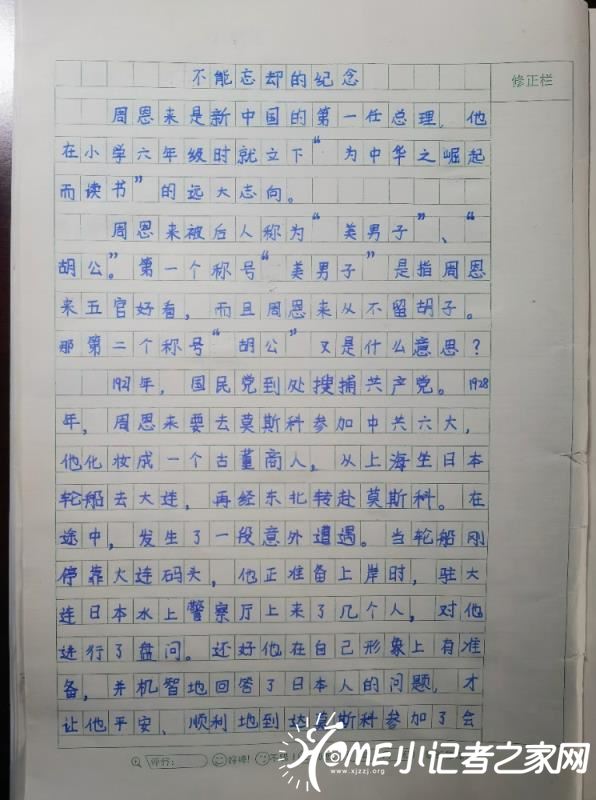 不能忘却的纪念
修正栏
周恩来是新中国的第一任总理,他
在小学六年级时就立下“为中华之崛起
而读书”的远大志向。
周恩来被后人称为“美男子”、“
胡公”。第一个称号“美男子”是指周恩
来五官好看,而且周恩来从不留胡子。
那第二个称号“胡公”又是什么意思?
1927年,国民党到处搜捕共产党。1928
年,周恩来要去莫斯科参加中共六大,
他化妆成一个古董商人,从上海坐日本
轮船去大连,再经东北转赴莫斯科。在
途中,发生了一段意外遭遇。当轮船刚
停靠大连码头,他正准备上岸时,驻大
连日本水上警察厅上来了几个人,对他
进行了盘问。还好他在自己形象上有准
备,并机智地回答了日本人的问题,才
让他平安、顺利地到达莫斯科参加了会
评分:
好棒!
HOME小记者之家网
www.xjzzj.org